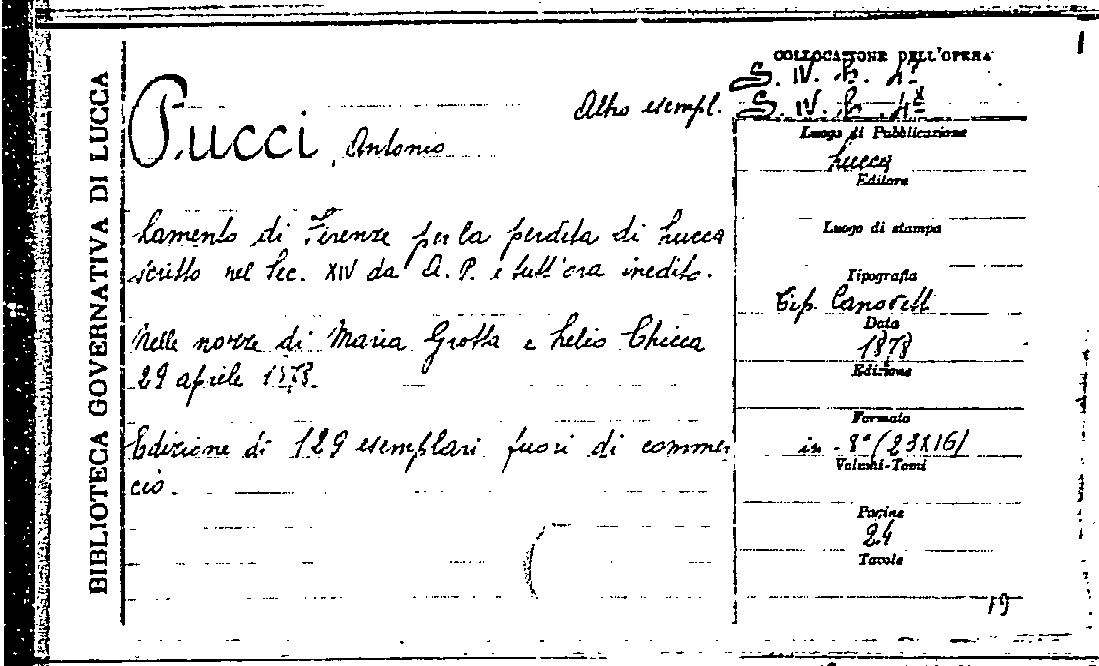 BIBLIOTECA GOVERNATIVA DI LUCCA
Pucci, Antonio
Altro esempl.
Lamento di Firenze per la perdita di Lucca
scritto nel sec. XIV da A. P. e tutt'ora inedito.
Nelle nozze di Maria Grotta e Lelio Chicca
29 aprile 1878.
Edizione di 129 esemplari fuori di commer
cio.
COLLOCAZIONE DELL'OPERA
S. IV. b. 4
S. IV. b. 4
Luogo di Pubblicazione
Lucca
Editore
Luogo di stampa
Tipografia
Tip. Canovetti
Data
1878
Edizione
Formato
in - 8° (23X16)
Volumi-Tomi
Pagine
24
Tavole
19